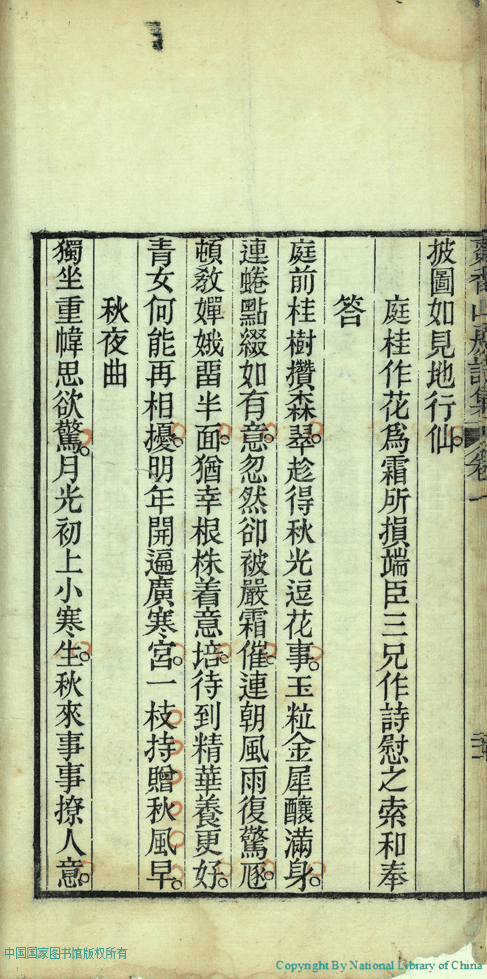 披圖如見地行仙
庭桂作花為霜所損端臣三兄作詩慰之索和奉
答
庭前桂樹攢森翠趁得秋光逗花事玉粒金犀釀滿身
連蜷點綴如有意忽然卻被嚴霜催連朝風雨復驚豗
頓教嬋娥畱半面猶幸根株着意培待到精華養更好
青女何能再相擾明年開遍廣寒宮一枝持贈秋風早
秋夜曲
獨坐重幃思欲驚月光初上小寒生秋來事事撩人意
中国国家图书馆版权所有
Copyright By National Library of China